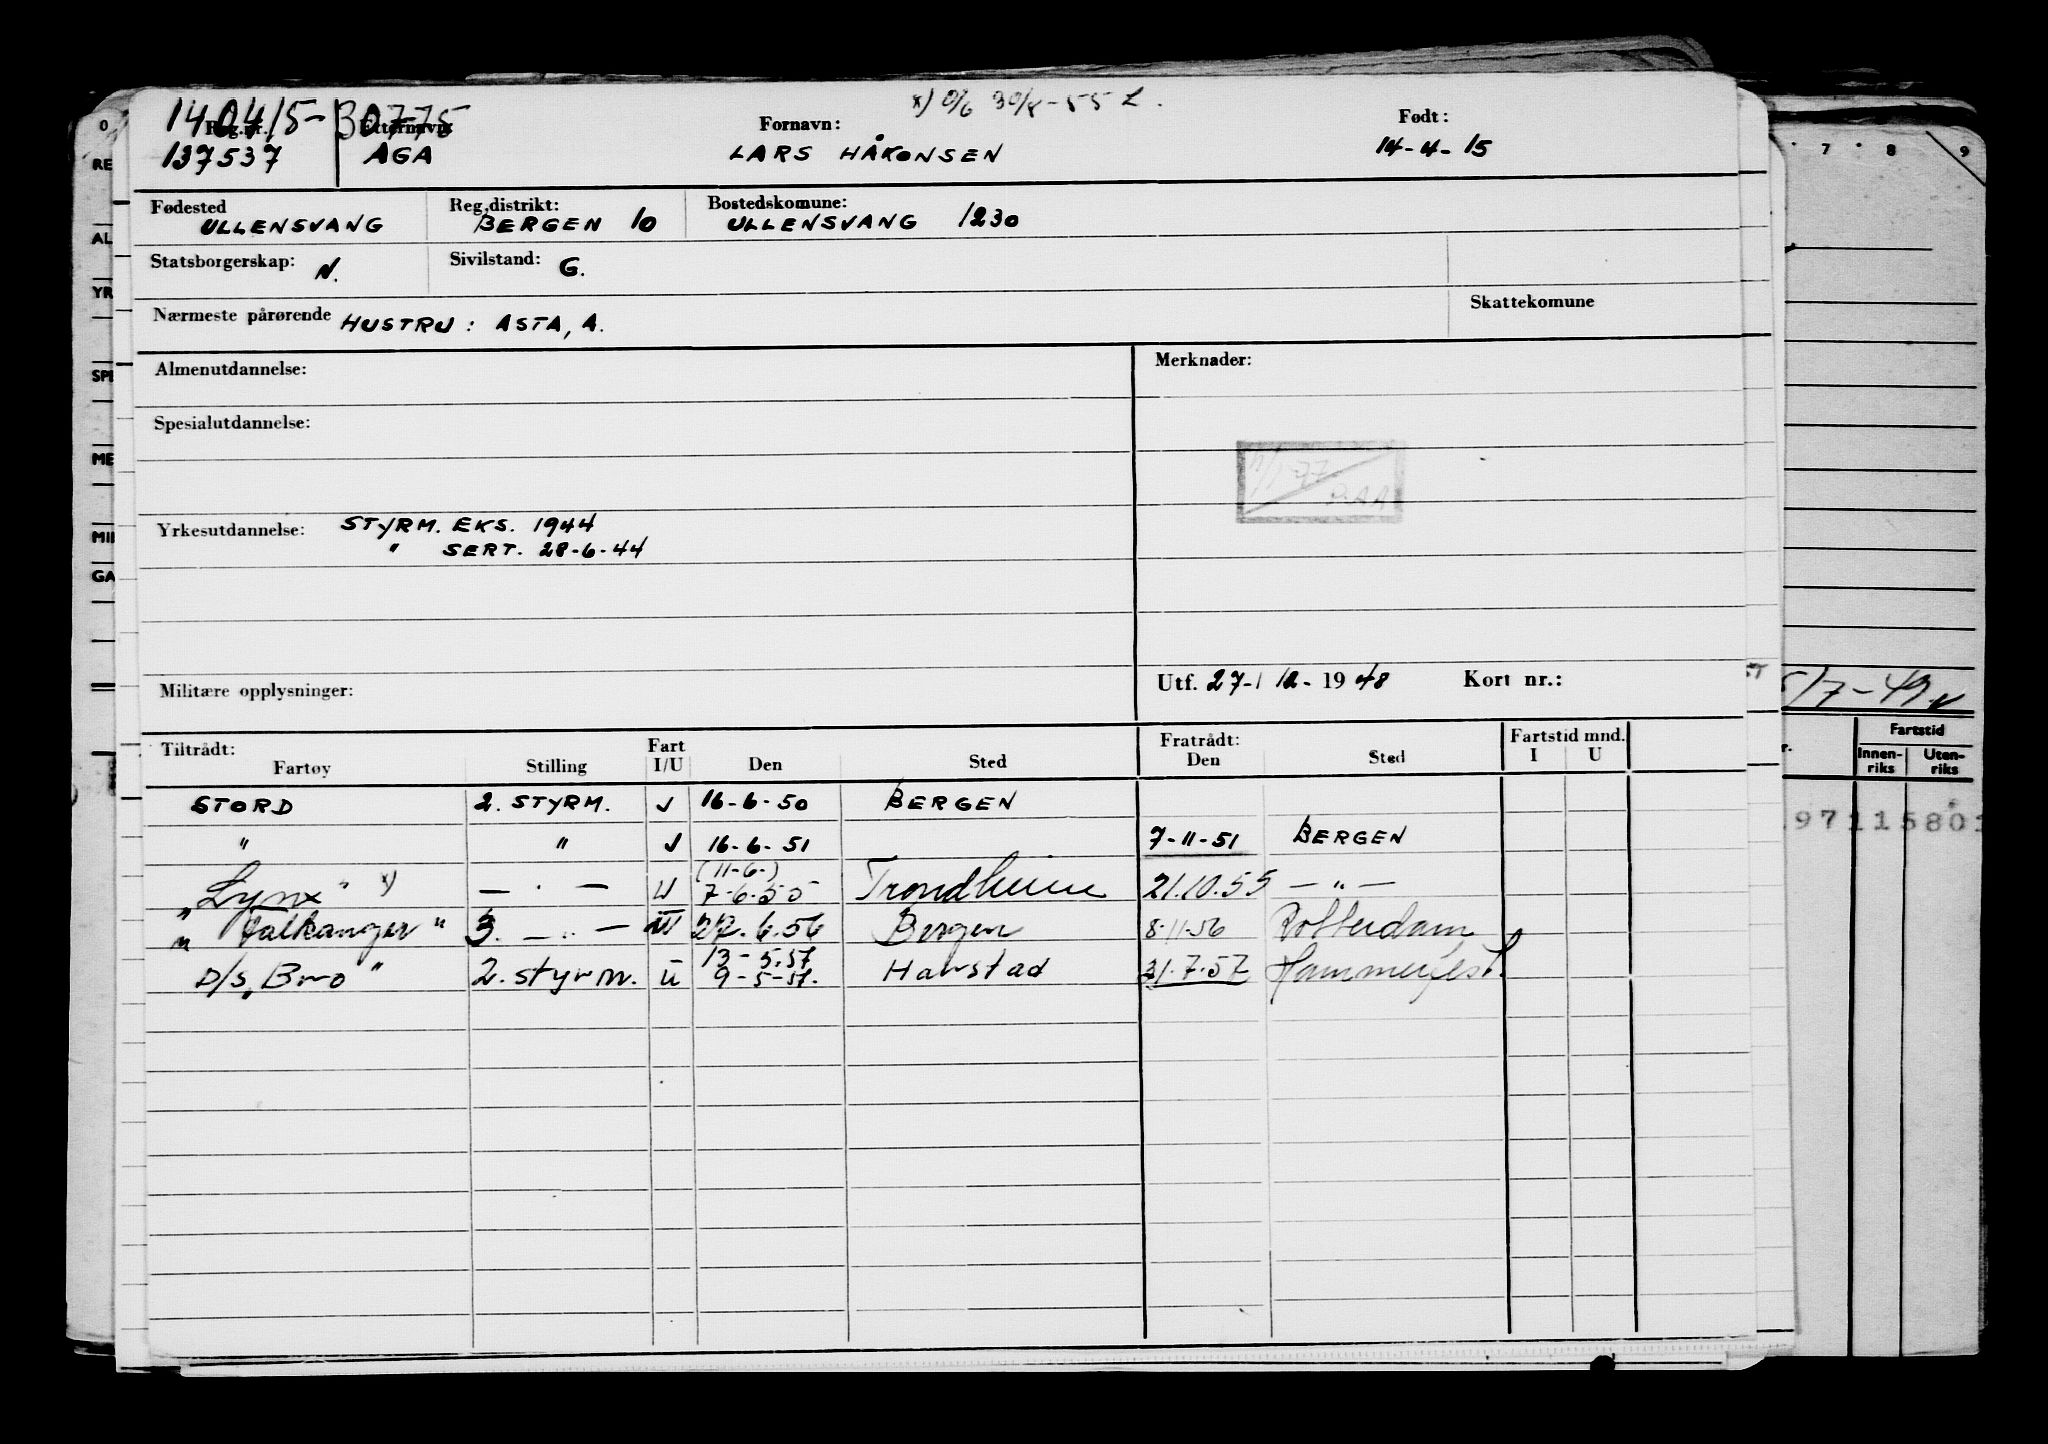 x) 30/8-55 L.
140415-30775
Reg.nr. Etternavn: Fornavn: Født:
137537 AGA LARS HÅKONSEN 14-4-15
Fødested Reg.distrikt: Bostedskomune:
ULLENSVANG BERGEN 10 ULLENSVANG 1230
Statsborgerskap: N. Sivilstand: G.
Nærmeste pårørende HUSTRU: ASTA, A. Skattekomune
Almenutdannelse: Merknader:
Spesialutdannelse:
Yrkesutdannelse: STYRM. EKS. 1944
" SERT. 28-6-44
Militære opplysninger: Utf. 27-12-1948 Kort nr.:
Tiltrådt: Fart Fratrådt: Fartstid mnd.
Fartøy Stilling I/U Den Sted Den Sted I U
STORD 2. STYRM. 16-6-50 BERGEN
" " 16-6-51 7-11-51 BERGEN
(11-6-)
"Lynx" x) — " — U 7-6-55 Trondheim 21.10.55 — " —
"Falkanger" 3. — " — 27.6.56 Bergen 8-11-56 Rotterdam
13-5.57
D/S "Bro" 2. styrm. U 9-5-57. Harstad 31.7.57 Hammerfest.
O
RE
AL
YR
SPE
ME
MIL
GA
7 8 9
/7-49
Fartstid
Innen-riks Uten-riks
97115801